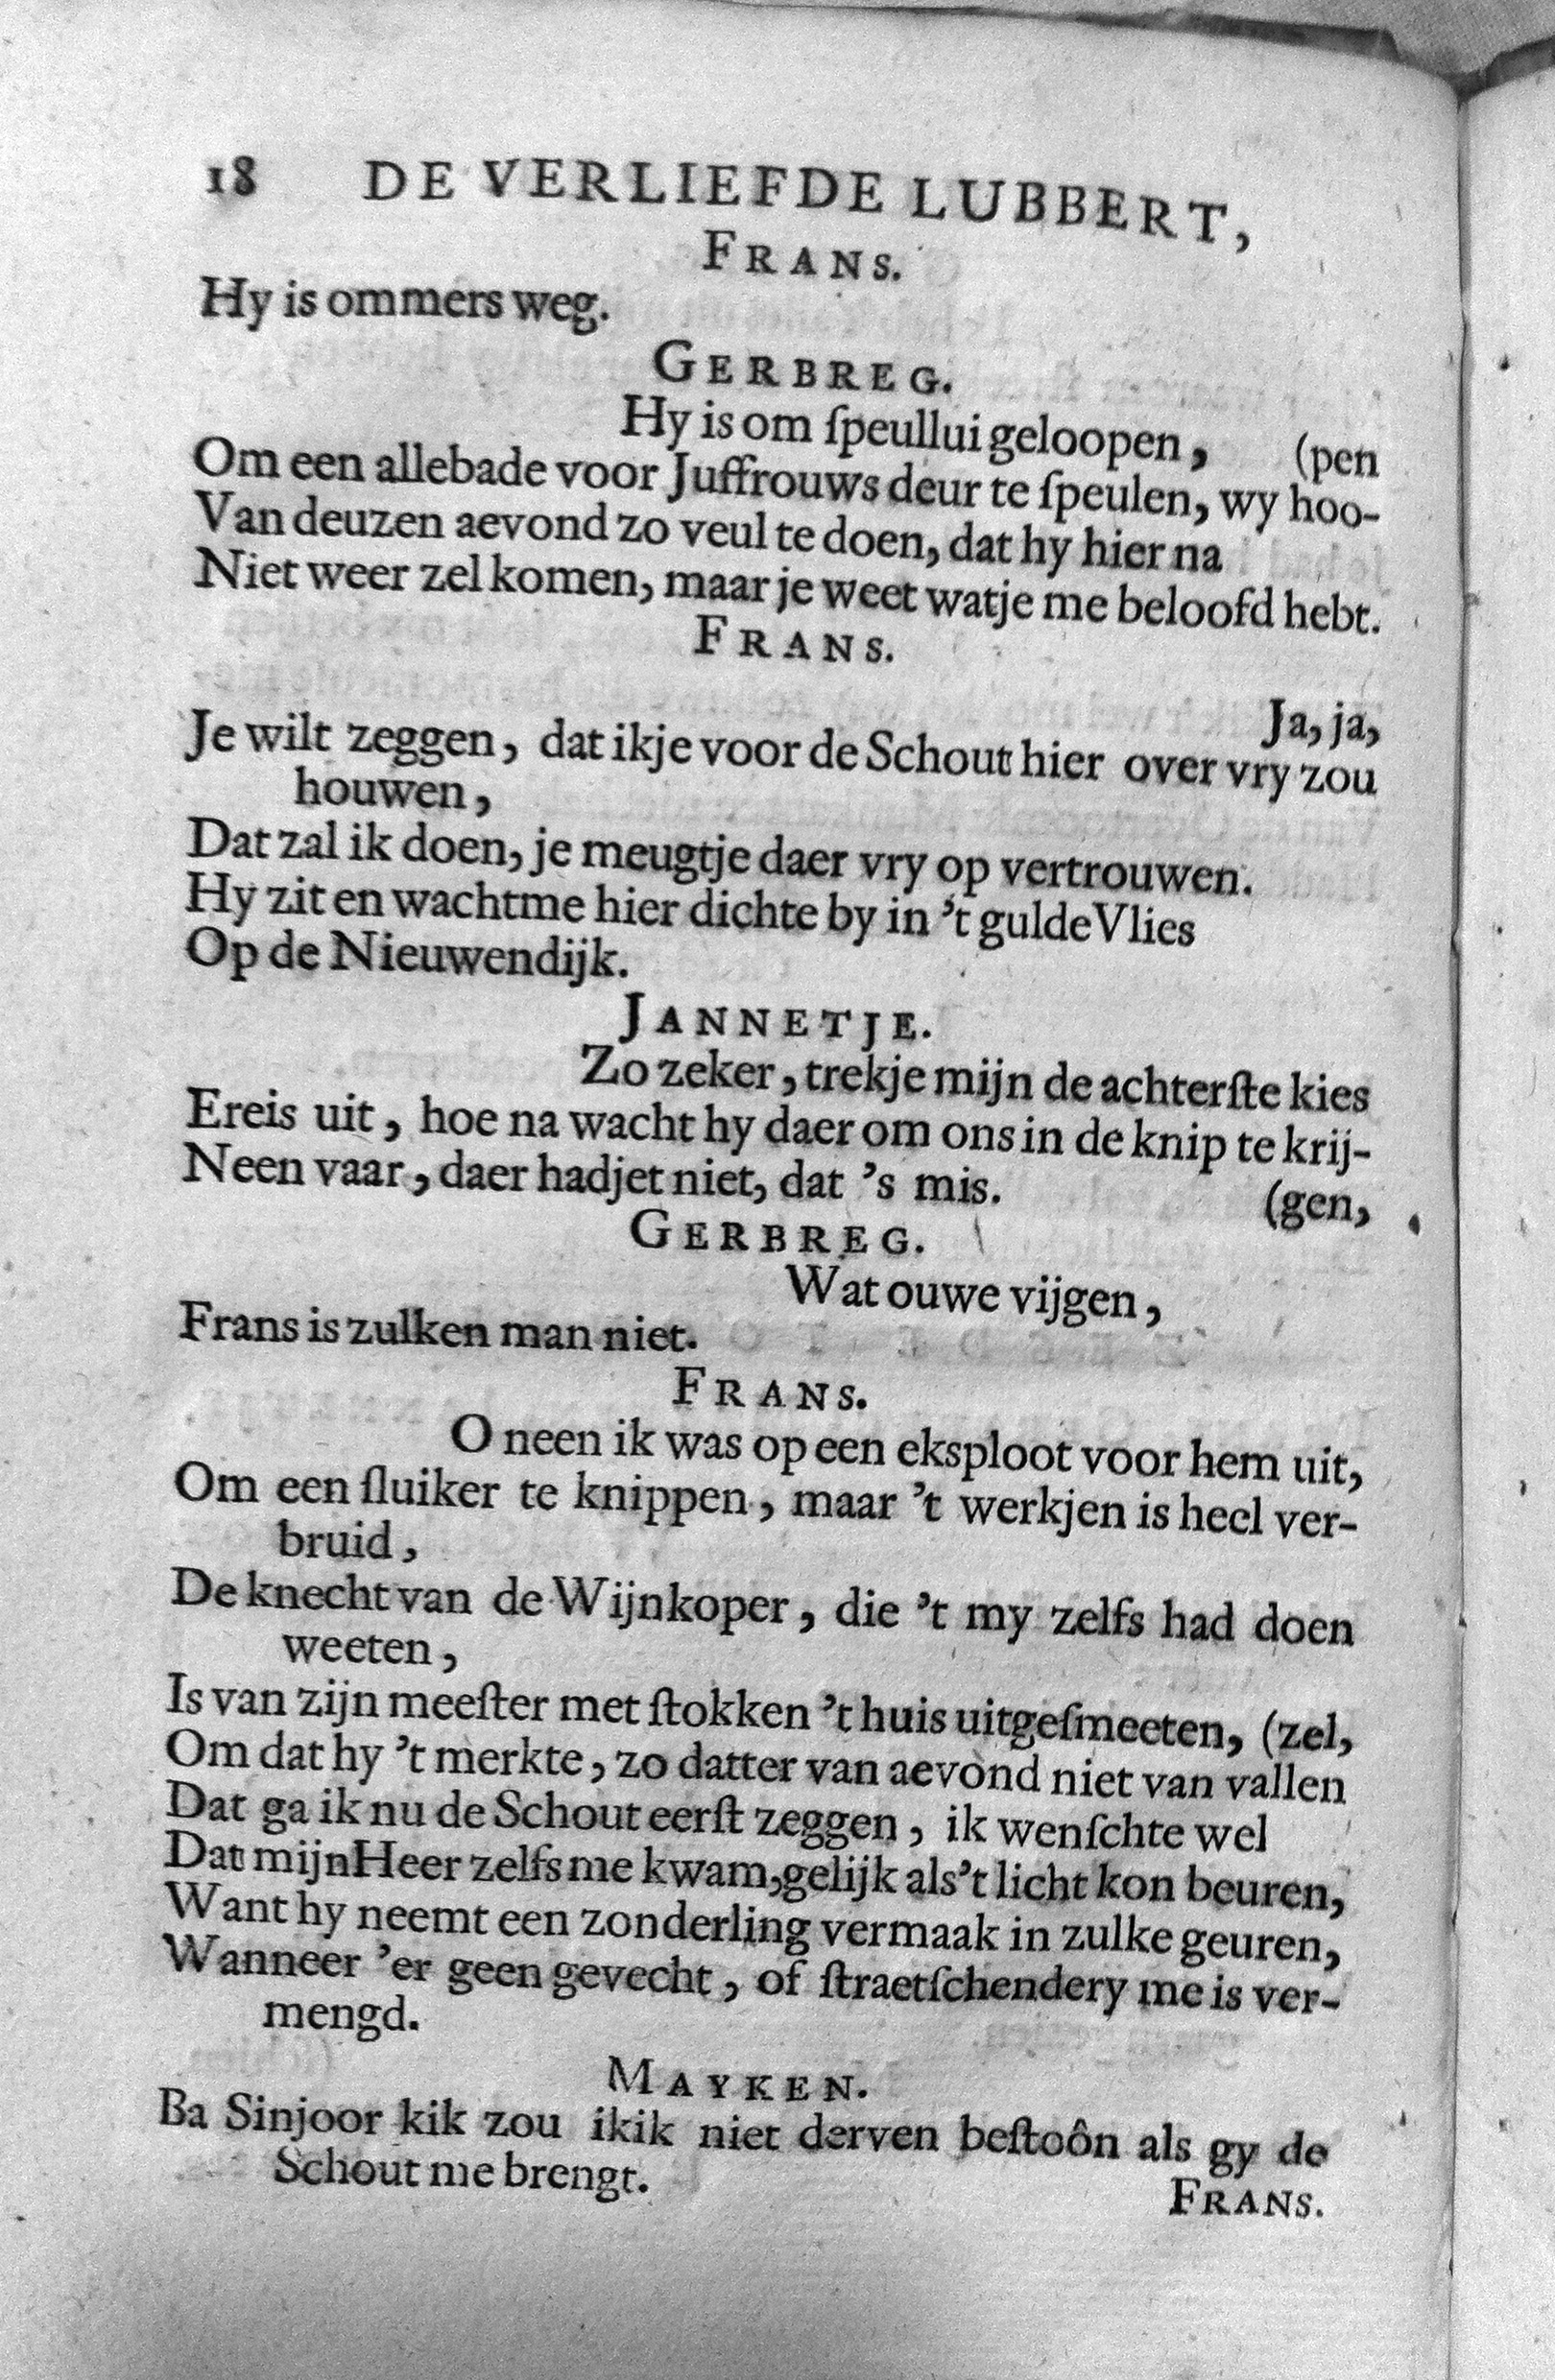 18 DE VERLIEFDE LUBBERT,
FRANS.
Hy is ommers weg.
GERBREG.
Hy is om ſpeullui geloopen, (pen
Om een allebade voor Juffrouws deur te ſpeulen, wy hoo-
Van deuzen aevond zo veul te doen, dat hy hier na
Niet weer zel komen, maar je weet watje me beloofd hebt.
FRANS.
Ja, ja,
Je wilt zeggen, dat ikje voor de Schout hier over vry zou
houwen,
Dat zal ik doen, je meugtje daer vry op vertrouwen.
Hy zit en wachtme hier dichte by in ’t gulde Vlies
Op de Nieuwendijk.
JANNETJE.
Zo zeker, trekje mijn de achterſte kies
Ereis uit, hoe na wacht hy daer om ons in de knip te krij-
Neen vaar, daer hadjet niet, dat ’s mis. (gen,
GERBREG.
Wat ouwe vijgen,
Frans is zulken man niet.
FRANS.
O neen ik was op een eksploot voor hem uit,
Om een ſluiker te knippen, maar ’t werkjen is heel ver-
bruid,
De knecht van de Wijnkoper, die ’t my zelfs had doen
weeten,
Is van zijn meeſter met ſtokken ’t huis uitgeſmeeten, (zel,
Om dat hy ’t merkte, zo datter van aevond niet van vallen
Dat ga ik nu de Schout eerſt zeggen, ik wenſchte wel
Dat mijn Heer zelfs me kwam, gelijk als ’t licht kon beuren,
Want hy neemt een zonderling vermaak in zulke geuren,
Wanneer ’er geen gevecht, of ſtraetſchendery me is ver-
mengd.
MAYKEN.
Ba Sinjoor kik zou ikik niet derven beſtoôn als gy de
Schout me brengt.
FRANS.